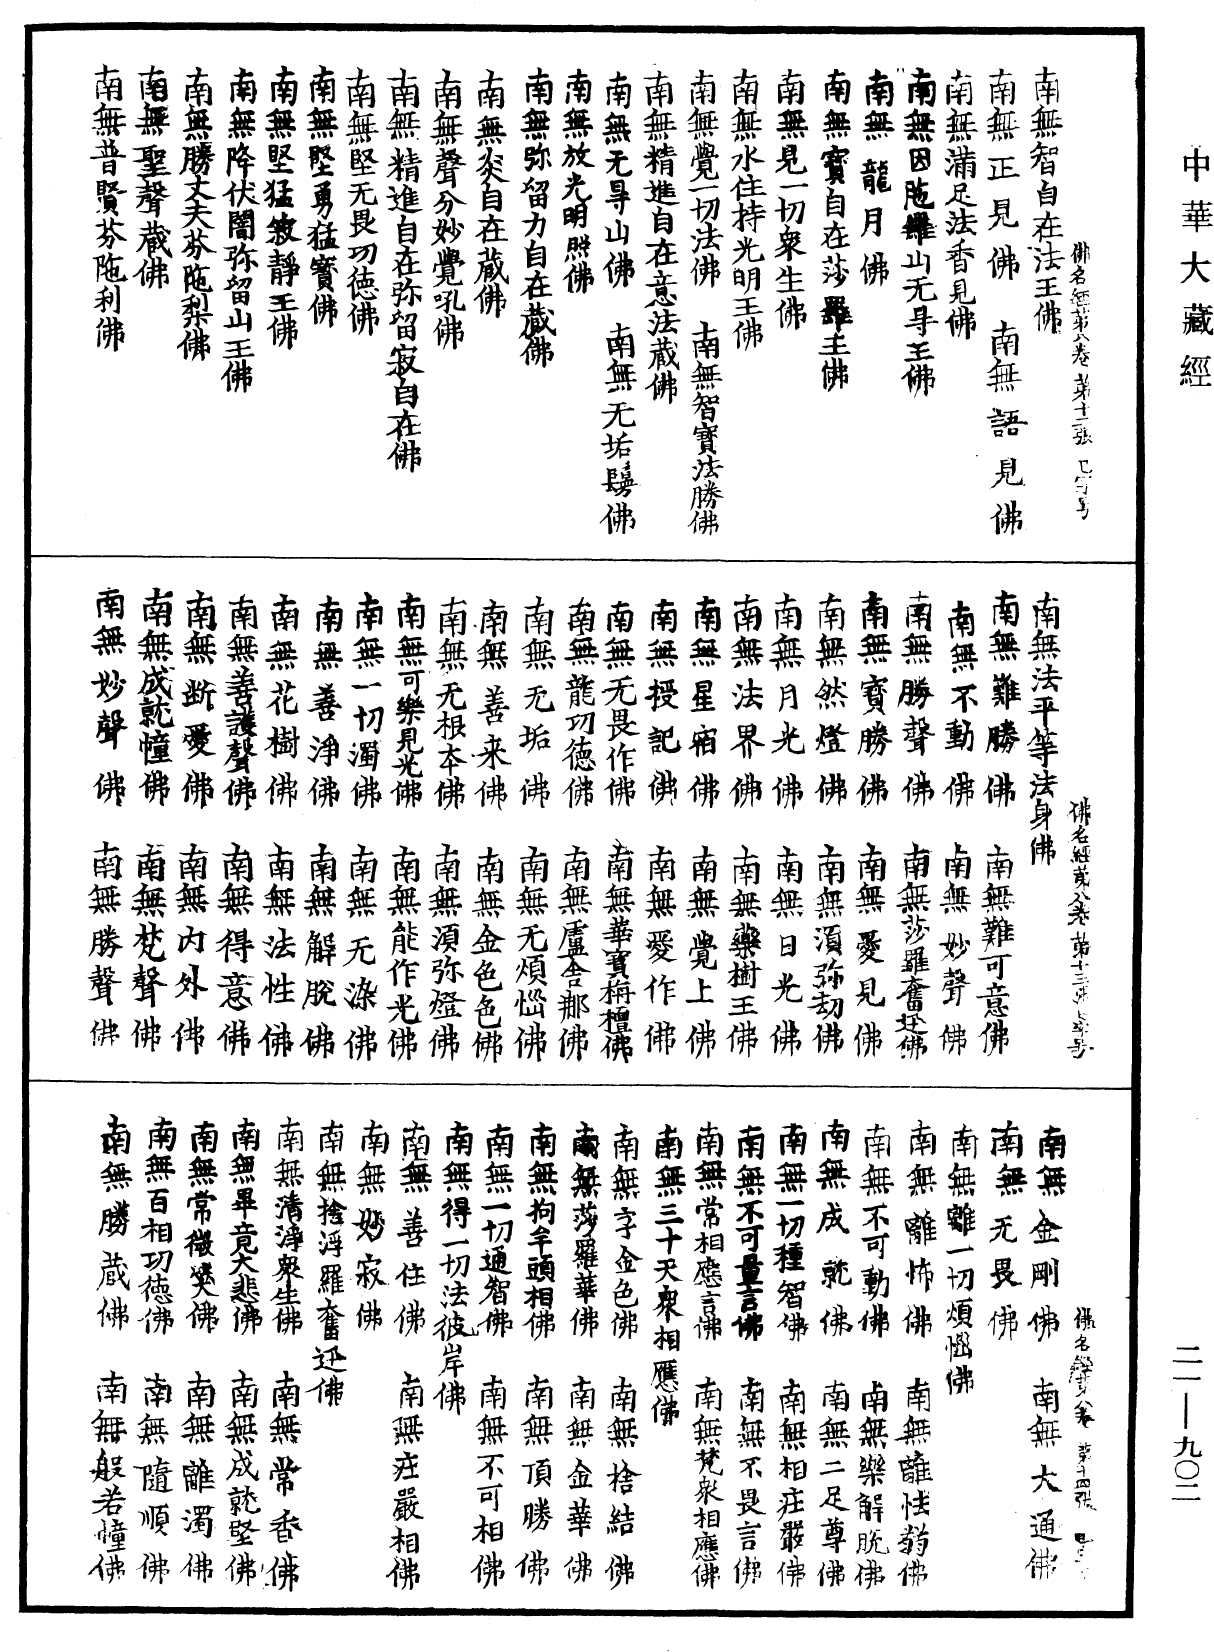 中華大藏經
二一—九〇二
佛名經第八卷 第十二張
南無智自在法王佛
南無正見佛 南無語見佛
南無滿足法香見佛
南無因陁羅山无㝵王佛
南無龍月佛
南無寶自在莎羅王佛
南無見一切衆生佛
南無水住持光明王佛
南無覺一切法佛 南無智寶法勝佛
南無精進自在意法藏佛
南無无㝵山佛 南無无垢髻佛
南無放光明照佛
南無弥留力自在藏佛
南無炎自在藏佛
南無聲分妙覺吼佛
南無精進自在弥留寂自在佛
南無堅无畏功德佛
南無堅勇猛寶佛
南無堅猛寂靜王佛
南無降伏闇弥留山王佛
南無勝丈夫芬陁梨佛
南無聖聲藏佛
南無普賢芬陁利佛
佛名經第八卷 第十三張
南無法平等法身佛
南無難勝佛 南無難可意佛
南無不動佛 南無妙聲佛
南無勝聲佛 南無莎羅奮迅佛
南無寶勝佛 南無愛見佛
南無然燈佛 南無須弥劫佛
南無月光佛 南無日光佛
南無法界佛 南無藥樹王佛
南無星宿佛 南無覺上佛
南無授記佛 南無愛作佛
南無无畏作佛 南無華寶栴檀佛
南無龍功德佛 南無盧舍那佛
南無无垢佛 南無无煩惱佛
南無善来佛 南無金色色佛
南無无根本佛 南無須弥燈佛
南無可樂見光佛 南無能作光佛
南無一切濁佛 南無无染佛
南無善淨佛 南無解脫佛
南無花樹佛 南無法性佛
南無善護聲佛 南無得意佛
南無断愛佛 南無內外佛
南無成就幢佛 南無梵聲佛
南無妙聲佛 南無勝聲佛
佛名經第八卷 第十四張
南無金剛佛 南無大通佛
南無无畏佛
南無離一切煩惱佛
南無離怖佛 南無離怯弱佛
南無不可動佛 南無樂解脫佛
南無成就佛 南無二足尊佛
南無一切種智佛 南無相庄嚴佛
南無不可量言佛 南無不畏言佛
南無常相應言佛 南無梵衆相應佛
南無三十天衆相應佛
南無字金色佛 南無捨結佛
南無莎羅華佛 南無金華佛
南無拘牟頭相佛 南無頂勝佛
南無一切通智佛 南無不可相佛
南無得一切法彼岸佛
南無善住佛 南無庄嚴相佛
南無妙寂佛
南無捨浮羅奮迅佛
南無清淨衆生佛 南無常香佛
南無畢竟大悲佛 南無成就堅佛
南無常微笑佛 南無離濁佛
南無百相功德佛 南無隨順佛
南無勝藏佛 南無般若幢佛